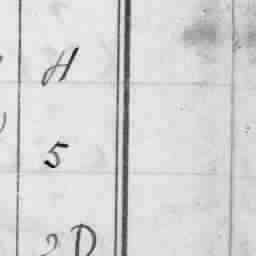 H
5
2D